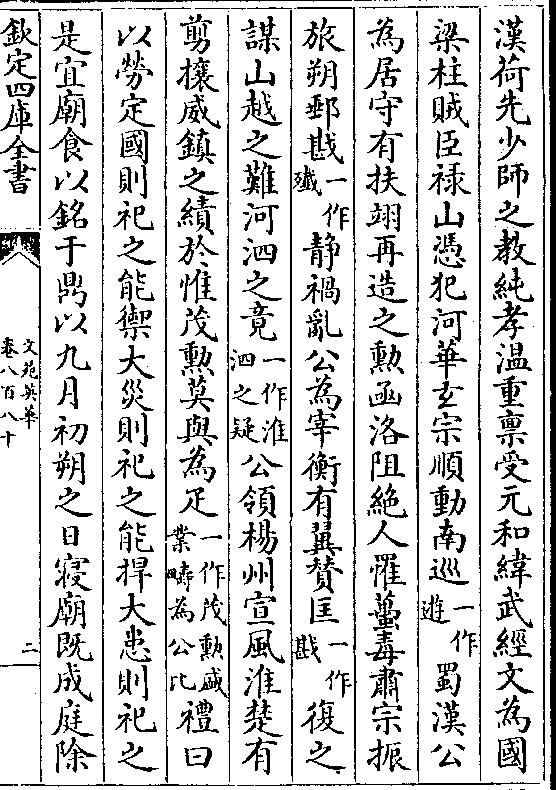 漢荷先少師之教純孝温重禀受元和緯武經文為國
梁柱賊臣禄山憑犯河華玄宗順動南巡一作遊蜀漢公
為居守有扶翊再造之勲函洛阻絶人罹蠆毒肅宗振
旅朔郵戡一作殱静禍亂公為宰衡有翼賛匡一作戡復之
謀山越之難河泗之竟一作淮泗之疑公領楊州宣風淮楚有
剪攘威鎮之績於惟茂勲莫與為疋一作茂勲盛業疇為公比禮曰
以勞定國則祀之能禦大災則祀之能捍大患則祀之
是宜廟食以銘于鼎以九月初朔之日寢廟既成庭除
欽定四庫全書
文苑英華
卷八百八十
二